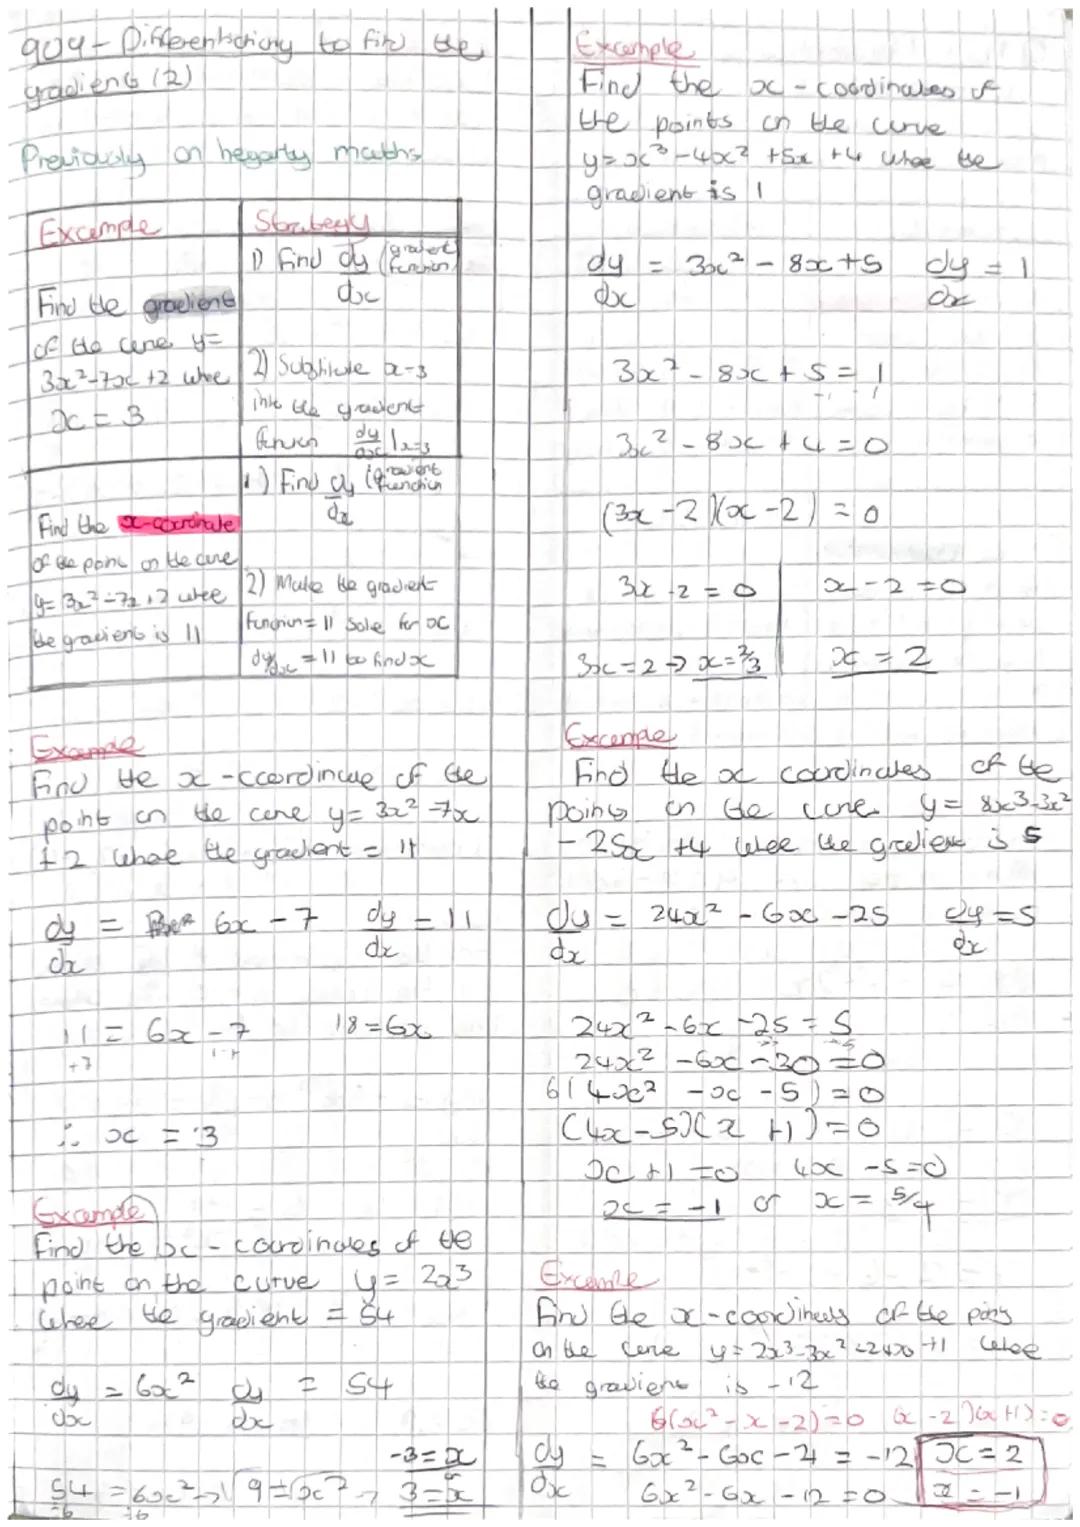 904 - Differentiating to find the
gradient (2)
Previously on hegarty maths
Example
Strategy
Find the gradient
of the curve y=
3x²-7x +2 where
x = 3
1) Find dy/dx (gradient function)
2) Substitute x=3
into the gradient
function dy/dx |x=3
Find the x-coordinate
of the point on the curve
y= 3x²-7x+2 where
the gradient is 11
1) Find dy/dx (gradient function
2) Make the gradient
function = 11 solve for x
dy/dx = 11 to find x
Example
Find the x-coordinate of the
point on the curve y= 3x² -7x
+2 where the gradient = 11
dy/dx = 6x - 7 dy/dx = 11
11 = 6x - 7 18 = 6x
+7
∴ x = 3
Example
Find the x - coordinates of the
point on the curve y= 2x³
where the gradient = 54
dy/dx = 6x² dy/dx = 54
-3 = x
54 = 6x² → √9 = √x² → 3 = x
÷6 ÷6
Example
Find the x - coordinates of
the points on the curve
y= x³ - 4x² +5x +4 where the
gradient is 1
dy/dx = 3x² - 8x +5 dy/dx = 1
3x² - 8x + 5 = 1
-1 -1
3x² - 8x + 4 = 0
(3x - 2)(x - 2) = 0
3x - 2 = 0 x - 2 = 0
3x = 2 → x = 2/3 x = 2
Example
Find the x coordinates of the
points on the curve y= 8x³-3x²
- 25x +4 where the gradient is 5
dy/dx = 24x² - 6x - 25 dy/dx = 5
24x² - 6x - 25 = 5
24x² - 6x - 30 = 0
6(4x² - x - 5) = 0
(4x - 5)(x +1) = 0
x +1 = 0 4x - 5 = 0
x = -1 or x = 5/4
Example
Find the x-coordinates of the points
on the curve y= 2x³-3x²-24x+1 where
the gradient is -12
6(x² - x - 2) = 0 (x -2)(x+1) = 0
dy/dx = 6x² - 6x - 24 = -12 x = 2
6x² - 6x - 12 = 0 x = -1